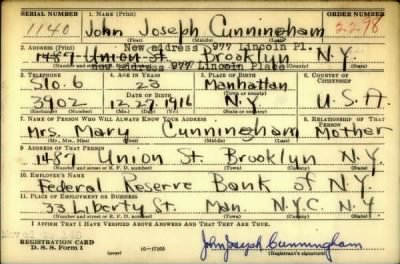 SERIAL NUMBER 1. NAME (Print) ORDER NUMBER
1140 John Joseph Cunningham 2298
(First) (Middle) (Last)
2. ADDRESS (Print) New address 977 Lincoln Pl.
1487 Union St. Brooklyn N.Y.
new address 977 Lincoln Place
(Number and street or R. F. D. number) (Town) (County) (State)
3. TELEPHONE 4. AGE IN YEARS 5. PLACE OF BIRTH 6. COUNTRY OF CITIZENSHIP
Slo. 6 23 Manhattan
(Town or county)
3902 12.27.1916 N.Y. U.S.A.
7. NAME OF PERSON WHO WILL ALWAYS KNOW YOUR ADDRESS 8. RELATIONSHIP OF THAT PERSON
Mrs. Mary Cunningham Mother
(Mr., Mrs., Miss) (First) (Middle) (Last)
9. ADDRESS OF THAT PERSON
1487 Union St. Brooklyn N.Y.
(Number and street or R. F. D. number) (Town) (County) (State)
10. EMPLOYER'S NAME
Federal Reserve Bank of N.Y.
11. PLACE OF EMPLOYMENT OR BUSINESS
33 Liberty St. Man. N.Y.C. N.Y
(Number and street or R. F. D. number) (Town) (County) (State)
I AFFIRM THAT I HAVE VERIFIED ABOVE ANSWERS AND THAT THEY ARE TRUE.
REGISTRATION CARD
D. S. S. Form 1 (over) 16—17105 John Joseph Cunningham
(Registrant's signature)